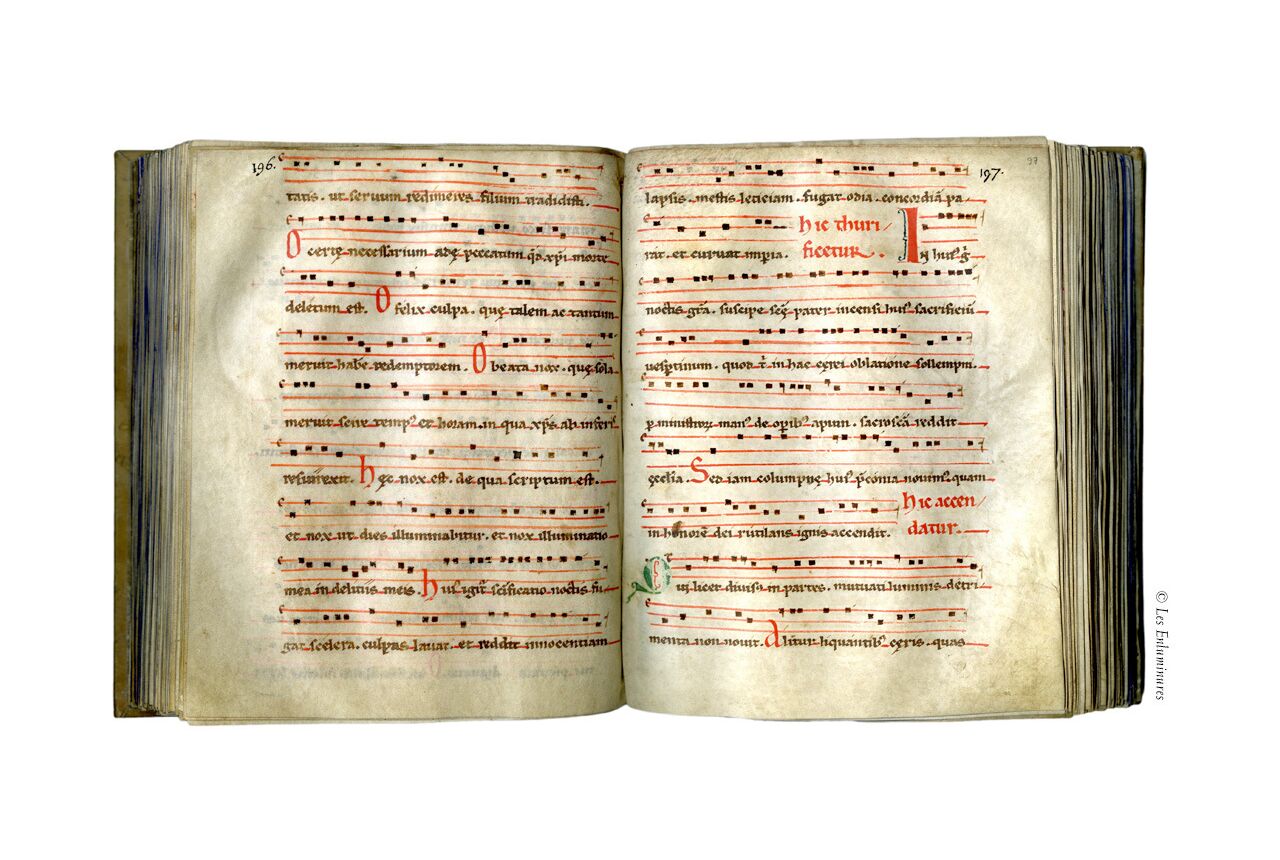 196.
tatis . ut seruum redimeres filium tradidisti .
O certe necessarium adę peccatum qd xp̄i morte
deletum est . O felix culpa . quę talem ac tantum
meruit habe redemptorem . O beata nox . quę sola
meruit scire temp⁹ et horam . in qua xp̄s ab inferis
resurrexit . hęc nox est . de qua scriptum est .
et nox ut dies illuminabitur . et nox illuminatio
mea in deliciis meis . hui⁹ igit᷑ sc̄ificatio noctis fu
gat scelera . culpas lauat . et reddit innocentiam
97
197.
lapsis . mestis leticiam . fugat odia . concordiā pa
rat . et curuat imperia . hic thuri
ficetur . In hui⁹ g̓
noctis gr̄a . suscipe sc̄ę pater incensi hui⁹ sacrificiū
uesptinum . quod t̓ in hac cęrei oblatione sollempni .
p ministror̄ man⁹ de opib⁹ apum . sacrosc̄ā reddit
ęcclia . Sed iam columpnę hui⁹ p̄conia nouim⁹ . quam
in honorē dei rutilans ignis accendit . hic accen
datur .
Qui licet diuisus in partes . mutuati luminis detri
menta non nouit . Alitur liquantib⁹ cęris . quas
© Les Enluminures